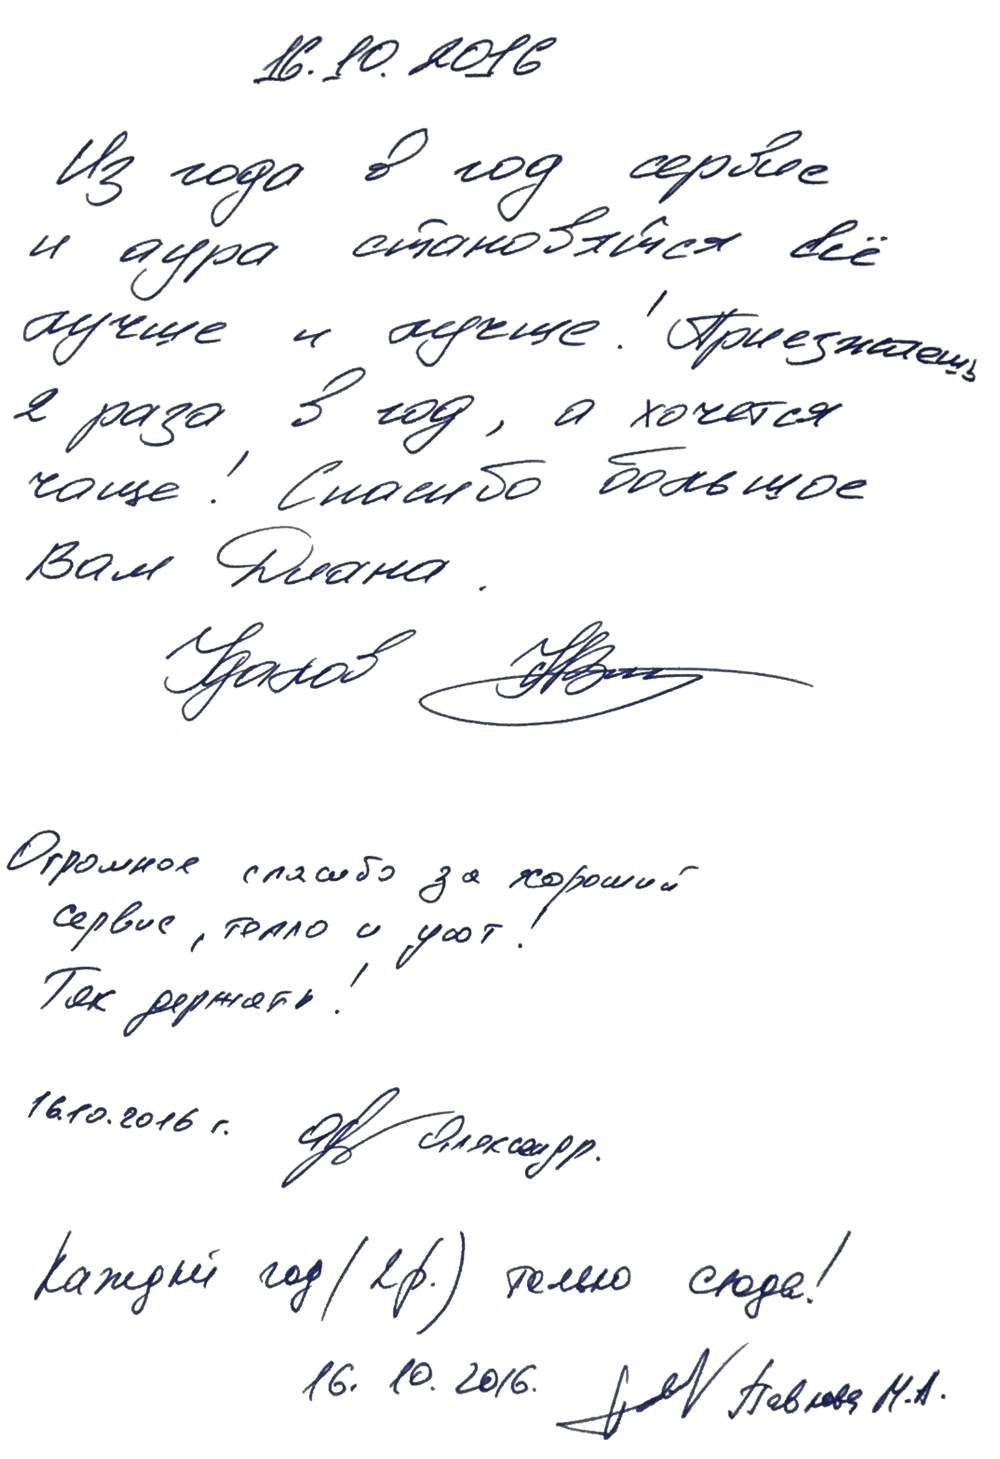 16.10.2016
Из года в год сервис
и аура становятся всё
лучше и лучше! Приезжаешь
2 раза в год, а хочется
чаще! Спасибо большое
Вам Диана.
Удалов
Огромное спасибо за хороший
сервис, тепло и уют!
Так держать!
16.10.2016 г. Александр.
Каждый год (2р.) только сюда!
16. 10. 2016. Павлова М.А.